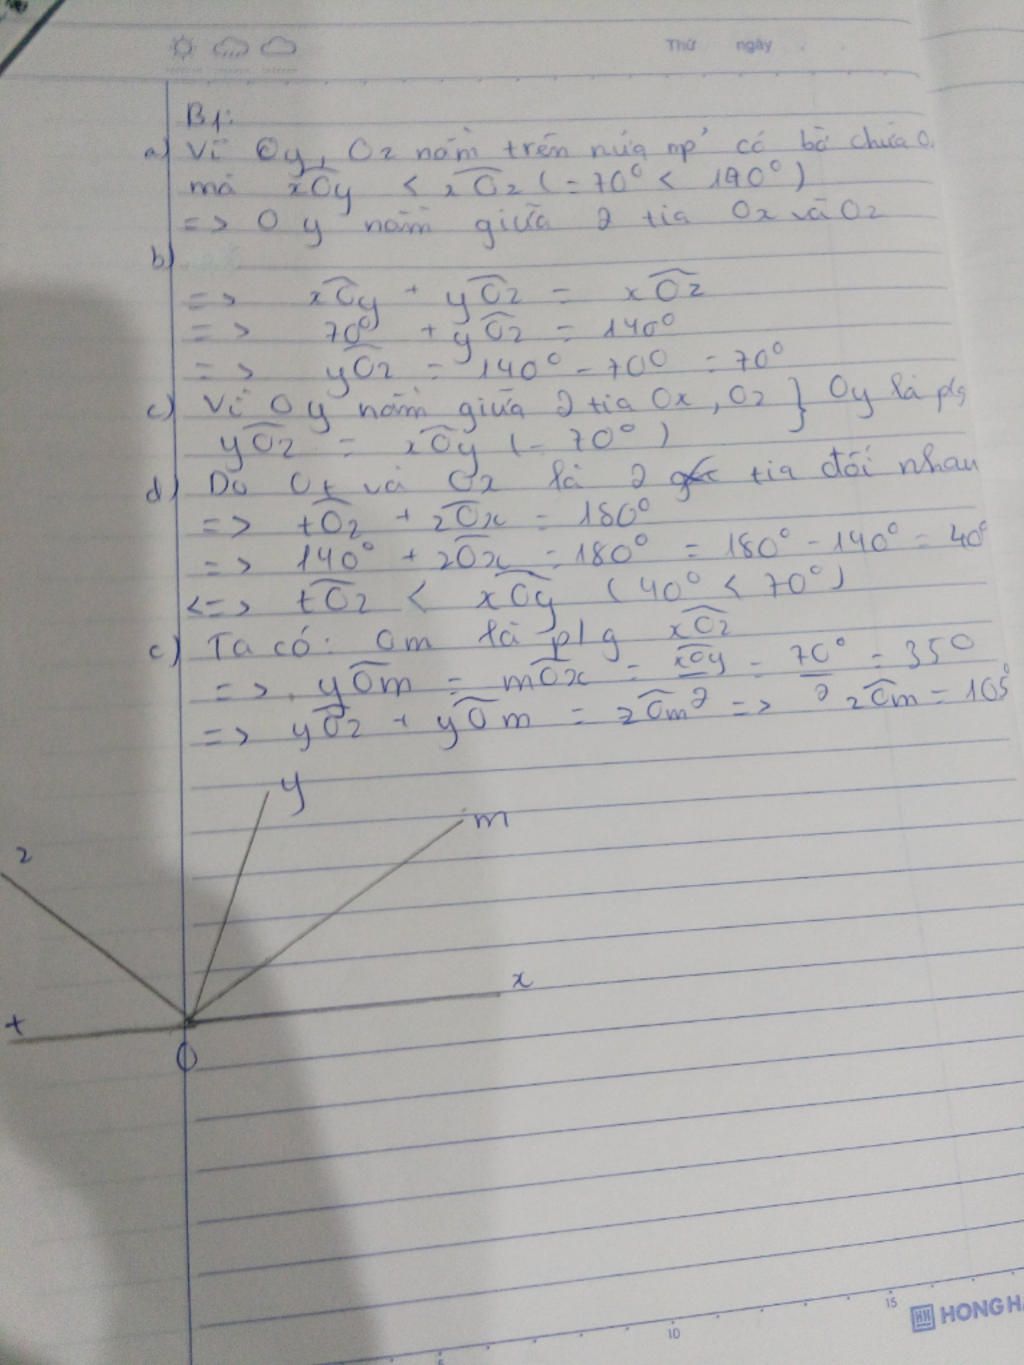 Thứ ngày
B1:
a) Vì Oy, Oz nằm trên nửa mp' có bờ chứa O
mà xOy < xOz (= 70° < 140°)
=> Oy nằm giữa 2 tia Ox và Oz
b)
=> xOy + yOz = xOz
=> 70° + yOz = 140°
=> yOz = 140° - 70° = 70°
c) Vì Oy nằm giữa 2 tia Ox, Oz } Oy là plg
yOz = xOy (= 70°)
d) Do Ot và Ox là 2 tia đối nhau
=> tOz + zOx = 180°
=> 140° + zOx = 180° = 180° - 140° = 40°
<=> tOz < xOy (40° < 70°)
e) Ta có: Om là plg xOz
=> yOm = mOx = xOy/2 = 70°/2 = 350
=> yOz + yOm = zOm => zOm = 105°
y
m
z
x
t
O
15
HONG H
10
5